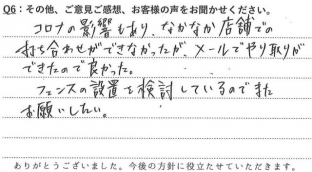 Q6：その他、ご意見ご感想、お客様の声をお聞かせください。
コロナの影響もあり、なかなか店舗での
打ち合わせができなかったが、メールでやり取りが
できたので良かった。
フェンスの設置を検討しているのでまた
お願いしたい。
ありがとうございました。今後の方針に役立たせていただきます。